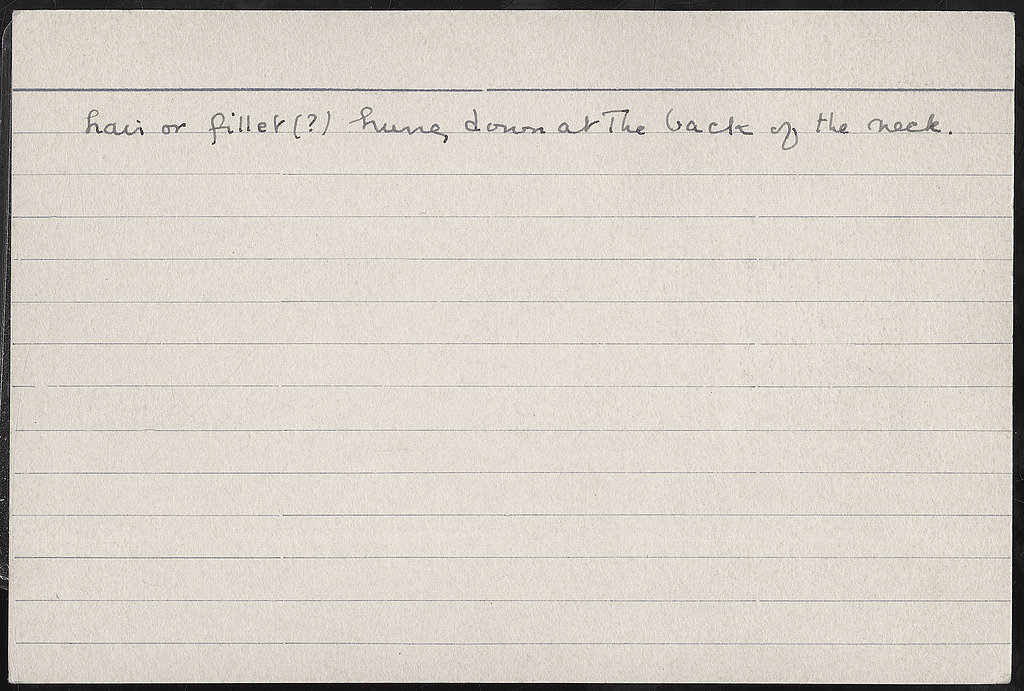 hair or fillet (?) hung down at The back of the neck.